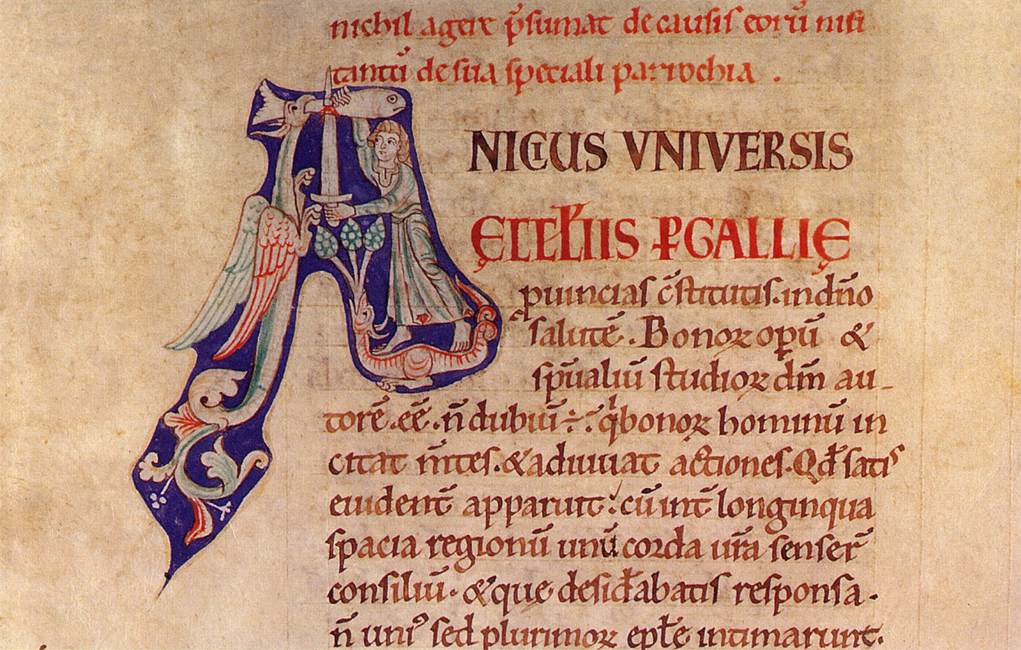 nichil agere p̄sumat de causis eorū nisi
tantū de sua speciali parrochia .
ANICIUS VNIVERSIS
ĘCCLĪIS P GALLIĘ
puincias c̄stitutis. in dn̄o
salutē. Bonoꝝ opū &
sp̄ualiū studioꝝ dm̄ au-
torē. eē. n̄ dubiū ÷. q̇ bonoꝝ hominū in
citat m̄tes. & adiuuat actiones. Qd̄ satis
euident̄ apparuit: cū int̄ longinqua
spacia regionū unū corda ur̄a senser̄
consiliū. & que desid̄abatis responsa.
n̄ uniꝰ sed plurimoꝝ ep̄łe intimarunt.